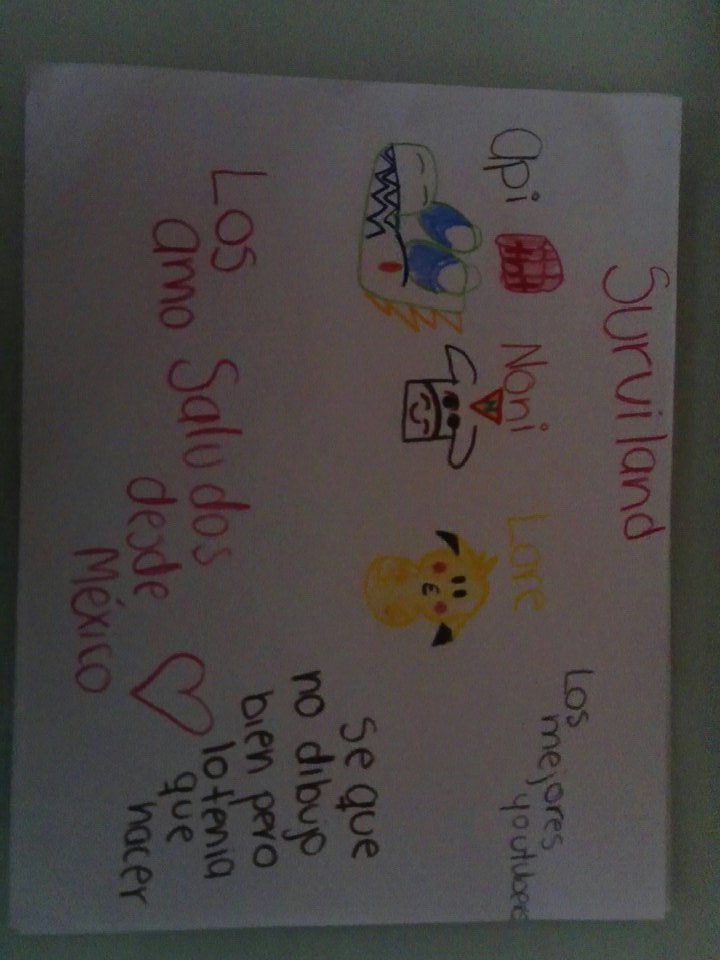 Surviland
Los
mejores
youtubers
api
Noni
Lore
N
Los
amo
Saludos
desde
México
Se que
no dibujo
bien pero
lo tenia
que
hacer